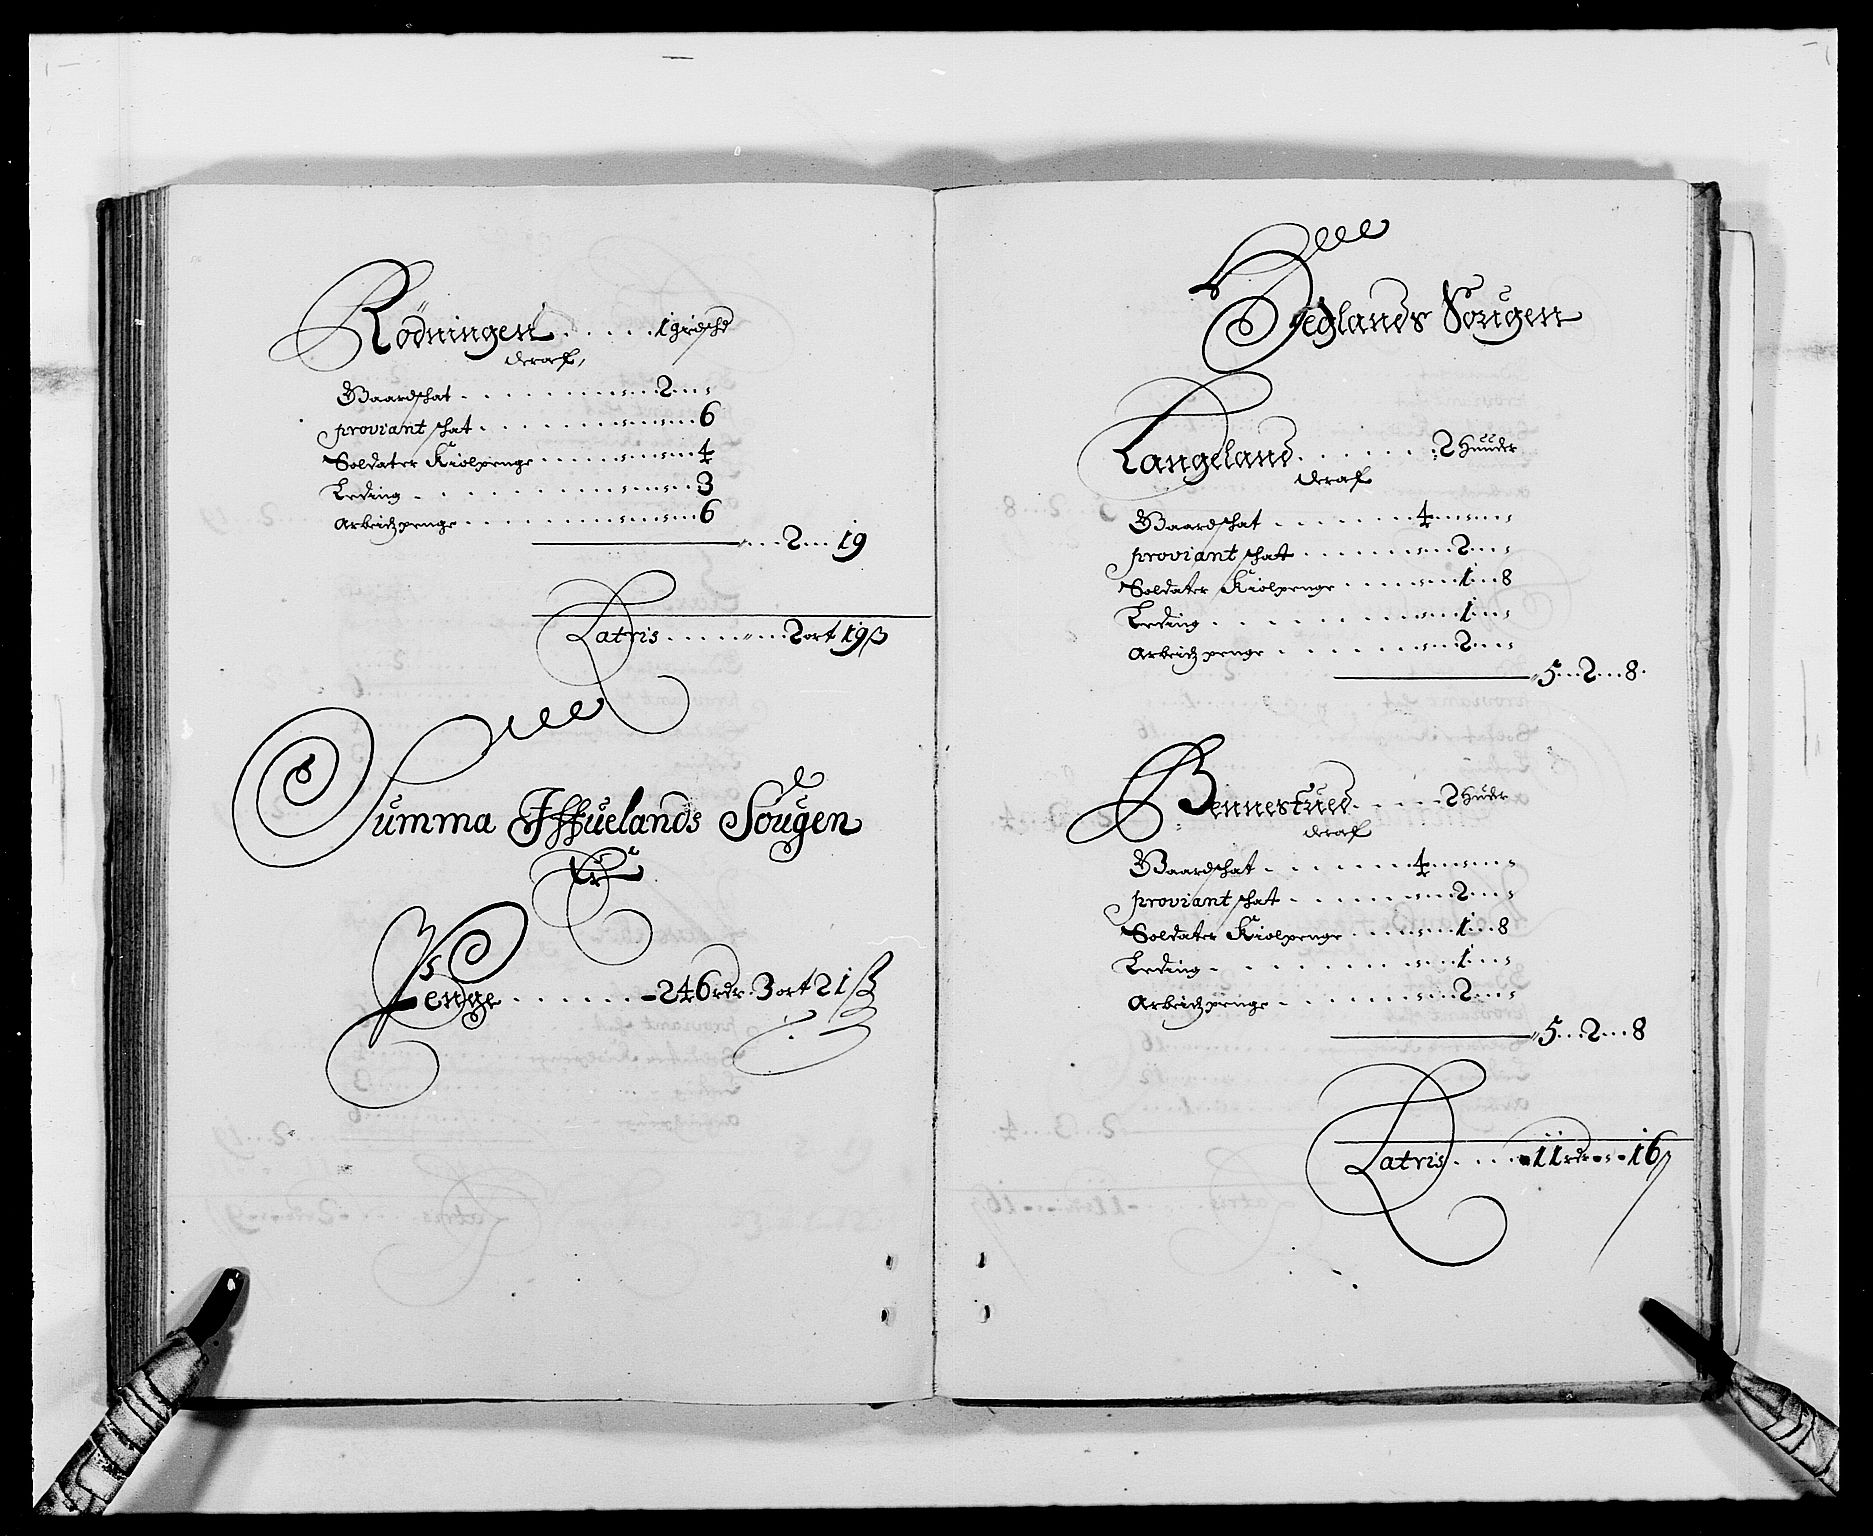 Rödningen . . . . . 1 girdschd
deraf,
Gaardschat . . . . . . . . . „ . . „ . . 2 . . . „
proviant schat . . . . . . . . „ . . „ . . „ . . 6
Soldater Kiolpenge . . . . . „ . . „ . . „ . . 4
Leding . . . . . . . . . . . „ . . „ . . 3
Arbeidzpenge . . . . . . . . . „ . . „ . . 6
„ . . . 2 . . . 19
Latris . . . . . . „ . . . 2 ort 19 β
Summa Iffuelands Sougen
Er
Penge . . . . . . . 246 rdr. 3 ort 21 β
Heglands Sougen
Langeland . . . . . . . 2 Huuder
deraf
Gaardschat . . . . . . . . 4 . . . „ . . . „
proviant schat . . . . . . . . „ . . . 2 . . . „
Soldater Kiolpenge . . . . . . „ . . . 1 . . . 8
Leding . . . . . . . . . . . „ . . . 1 . . . „
Arbeidz penge . . . . . . . . . „ . . . 2 . . . „
5 . . . 2 . . . 8
Bennestued . . . . . 2 Huder
deraf
Gaardschat . . . . . . . . 4 . . . „ . . . „
proviant schat . . . . . . . . „ . . . 2 . . . „
Soldater Kiolpenge . . . . . . „ . . . 1 . . . 8
Leding . . . . . . . . . . . „ . . . 1 . . . „
Arbeidz penge . . . . . . . . . „ . . . 2 . . . „
5 . . . 2 . . . 8
Latris . . . . - 11 rdr - „ - 16 β